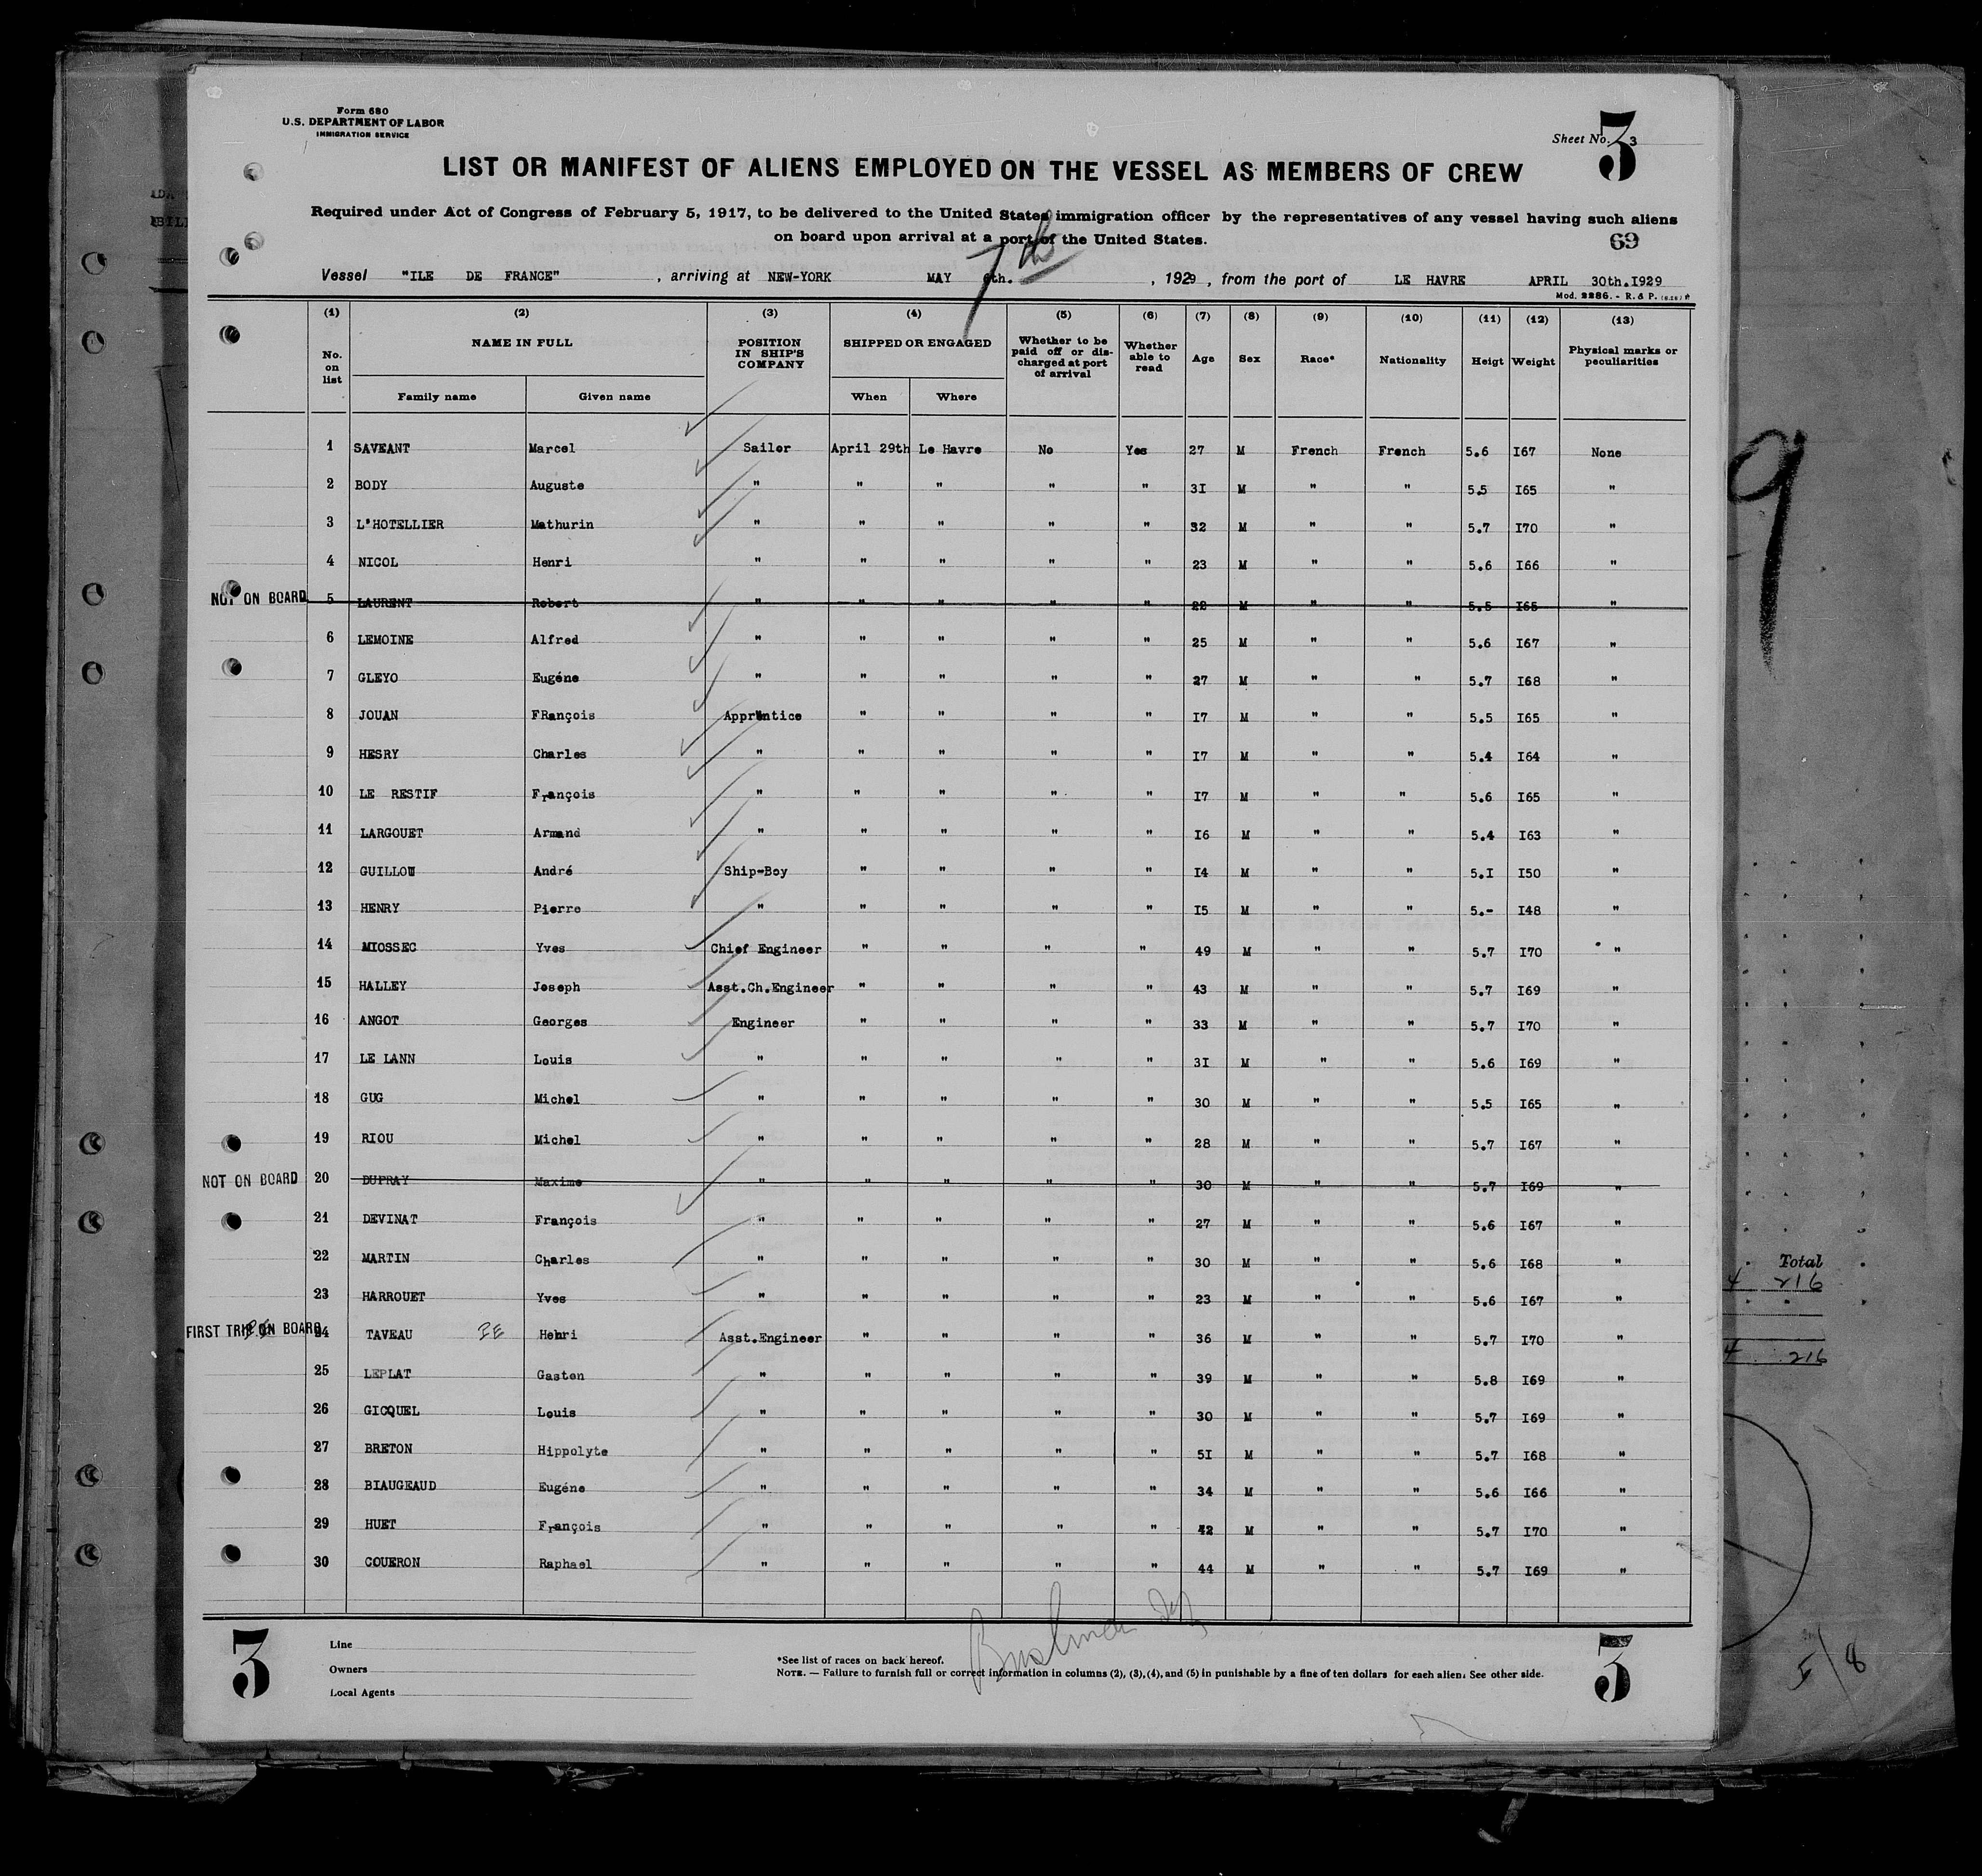 Form 680
U.S. DEPARTMENT OF LABOR
IMMIGRATION SERVICE
Sheet No. 3
3
LIST OR MANIFEST OF ALIENS EMPLOYED ON THE VESSEL AS MEMBERS OF CREW
Required under Act of Congress of February 5, 1917, to be delivered to the United States immigration officer by the representatives of any vessel having such aliens
on board upon arrival at a port of the United States.
69
7th
Vessel "ILE DE FRANCE" , arriving at NEW-YORK MAY 6th. , 1929 , from the port of LE HAVRE APRIL 30th.I929
Mod. 2286. - R. & P.
(1) (2) (3) (4) (5) (6) (7) (8) (9) (10) (11) (12) (13)
No. on list NAME IN FULL POSITION IN SHIP'S COMPANY SHIPPED OR ENGAGED Whether to be paid off or discharged at port of arrival Whether able to read Age Sex Race* Nationality Heigt Weight Physical marks or peculiarities
Family name Given name When Where
1 SAVEANT Marcel Sailor April 29th Le Havre No Yes 27 M French French 5.6 I67 None
2 BODY Auguste " " " " " 3I M " " 5.5 I65 "
3 L'HOTELLIER Mathurin " " " " " 32 M " " 5.7 I70 "
4 NICOL Henri " " " " " 23 M " " 5.6 I66 "
NOT ON BOARD 5 LAURENT Robert " " " " " 22 M " " 5.5 I65 "
6 LEMOINE Alfred " " " " " 25 M " " 5.6 I67 "
7 GLEYO Eugéne " " " " " 27 M " " 5.7 I68 "
8 JOUAN FRançois Apprentice " " " " I7 M " " 5.5 I65 "
9 HESRY Charles " " " " " I7 M " " 5.4 I64 "
10 LE RESTIF François " " " " " I7 M " " 5.6 I65 "
11 LARGOUET Armand " " " " " I6 M " " 5.4 I63 "
12 GUILLOU André Ship-Boy " " " " I4 M " " 5.I I50 "
13 HENRY Pierre " " " " " I5 M " " 5.- I48 "
14 MIOSSEC Yves Chief Engineer " " " " 49 M " " 5.7 I70 "
15 HALLEY Joseph Asst.Ch.Engineer " " " " 43 M " " 5.7 I69 "
16 ANGOT Georges Engineer " " " " 33 M " " 5.7 I70 "
17 LE LANN Louis " " " " " 3I M " " 5.6 I69 "
18 GUG Michel " " " " " 30 M " " 5.5 I65 "
19 RIOU Michel " " " " " 28 M " " 5.7 I67 "
NOT ON BOARD 20 DUPRAY Maxime " " " " " 30 M " " 5.7 I69 "
21 DEVINAT François " " " " " 27 M " " 5.6 I67 "
22 MARTIN Charles " " " " " 30 M " " 5.6 I68 "
23 HARROUET Yves " " " " " 23 M " " 5.6 I67 "
FIRST TRIP ON BOARD 24 TAVEAU Henri Asst.Engineer " " " " 36 M " " 5.7 I70 "
25 LEPLAT Gaston " " " " " 39 M " " 5.8 I69 "
26 GICQUEL Louis " " " " " 30 M " " 5.7 I69 "
27 BRETON Hippolyte " " " " " 5I M " " 5.7 I68 "
28 BIAUGEAUD Eugéne " " " " " 34 M " " 5.6 I66 "
29 HUET François " " " " " 42 M " " 5.7 I70 "
30 COUERON Raphael " " " " " 44 M " " 5.7 I69 "
Total
4 216
4 216
3
Line
Owners
Local Agents
*See list of races on back hereof.
NOTE. — Failure to furnish full or correct information in columns (2), (3), (4), and (5) in punishable by a fine of ten dollars for each alien. See other side.
3
5/8
9